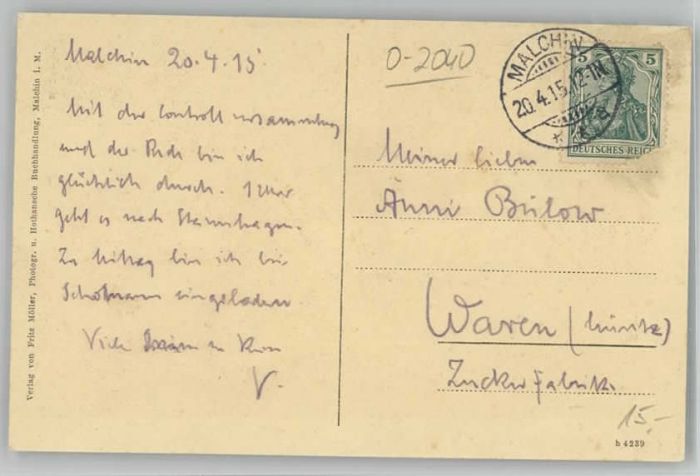 Malchin 20.4.15
Mit der Controllversammlung
und der Rede bin ich
glücklich durch. 1 Uhr
geht es nach Stavenhagen.
Zu Mittag bin ich bei
Schömann eingeladen.
Viele
V.
0-2040
MALCHIN
20.4.15.12-1N
5
5
DEUTSCHES REICH
Meiner lieben
Änni Bülow
Waren (Müritz)
Zuckerfabrik
15,-
h 4239
Verlag von Fritz Möller, Photogr. u. Hothansche Buchhandlung, Malchin i. M.